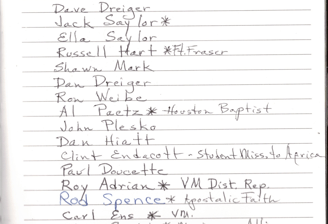 Dave Dreiger
Jack Saylor *
Ella Saylor
Russell Hart * Ft. Fraser
Shawn Mark
Dan Dreiger
Ron Weibe
Al Paetz * Houston Baptist
John Plesko
Dan Hiatt
Clint Endacott - Student Miss. to Africa
Paul Doucette
Roy Adrian * VM Dist. Rep.
Rod Spence * Apostalic Faith
Carl Ens * VM.